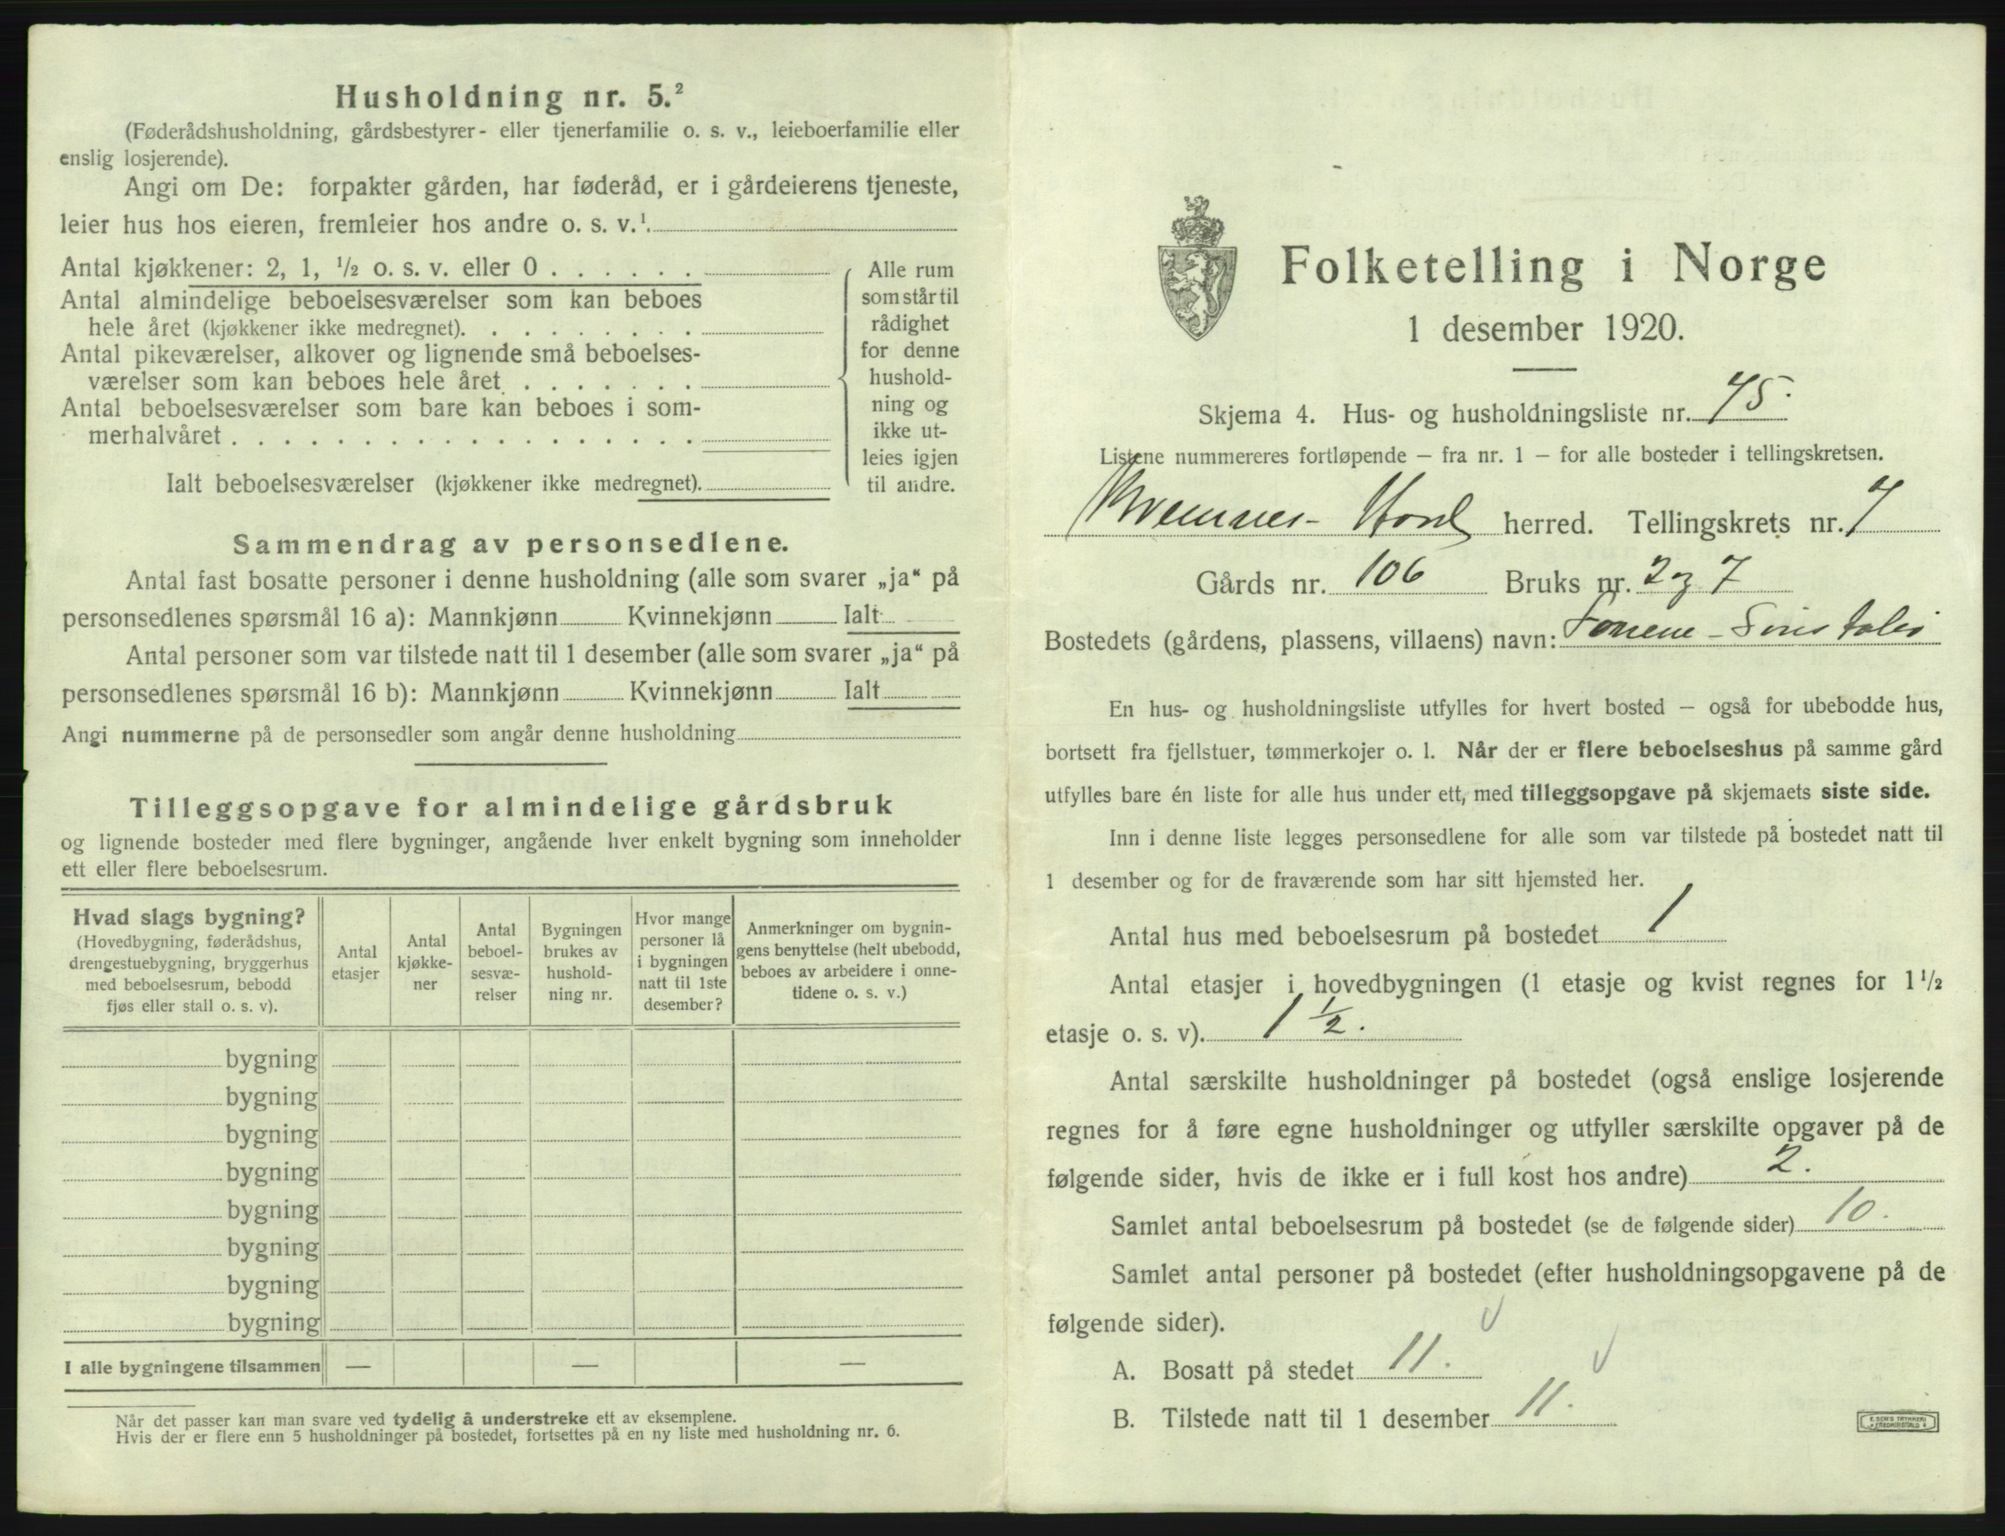 Husholdning nr. 5.²
(Føderådshusholdning, gårdsbestyrer- eller tjenerfamilie o. s. v., leieboerfamilie eller
enslig losjerende).
Angi om De: forpakter gården, har føderåd, er i gårdeierens tjeneste,
leier hus hos eieren, fremleier hos andre o. s. v.¹.
Antal kjøkkener: 2, 1, ½ o. s. v. eller 0 . . . . . .
Antal almindelige beboelsesværelser som kan beboes
hele året (kjøkkener ikke medregnet). . . . . . . . .
Antal pikeværelser, alkover og lignende små beboelses-
værelser som kan beboes hele året . . . . . . .
Antal beboelsesværelser som bare kan beboes i som-
merhalvåret . . . . . . . . . . . . . . . . . .
Ialt beboelsesværelser (kjøkkener ikke medregnet).
Alle rum
som står til
rådighet
for denne
hushold-
ning og
ikke ut-
leies igjen
til andre.
Sammendrag av personsedlene.
Antal fast bosatte personer i denne husholdning (alle som svarer „ja“ på
personsedlenes spørsmål 16 a): Mannkjønn Kvinnekjønn Ialt
Antal personer som var tilstede natt til 1 desember (alle som svarer „ja“ på
personsedlenes spørsmål 16 b): Mannkjønn Kvinnekjønn Ialt
Angi nummerne på de personsedler som angår denne husholdning
Tilleggsopgave for almindelige gårdsbruk
og lignende bosteder med flere bygninger, angående hver enkelt bygning som inneholder
ett eller flere beboelsesrum.
Hvad slags bygning?
(Hovedbygning, føderådshus,
drengestuebygning, bryggerhus
med beboelsesrum, bebodd
fjøs eller stall o. s. v).
Antal
etasjer
Antal
kjøkke-
ner
Antal
beboel-
sesvæ-
relser
Bygningen
brukes av
hushold-
ning nr.
Hvor mange
personer lå
i bygningen
natt til 1ste
desember?
Anmerkninger om bygnin-
gens benyttelse (helt ubebodd,
beboes av arbeidere i onne-
tidene o. s. v.)
bygning
bygning
bygning
bygning
bygning
bygning
bygning
bygning
I alle bygningene tilsammen — — —
Når det passer kan man svare ved tydelig å understreke ett av eksemplene.
Hvis der er flere enn 5 husholdninger på bostedet, fortsettes på en ny liste med husholdning nr. 6.
Folketelling i Norge
1 desember 1920.
Skjema 4. Hus- og husholdningsliste nr. 75.
Listene nummereres fortløpende — fra nr. 1 — for alle bosteder i tellingskretsen.
herred. Tellingskrets nr. 7
Gårds nr. 106 Bruks nr. 2 og 7
Bostedets (gårdens, plassens, villaens) navn:
En hus- og husholdningsliste utfylles for hvert bosted — også for ubebodde hus,
bortsett fra fjellstuer, tømmerkojer o. l. Når der er flere beboelseshus på samme gård
utfylles bare én liste for alle hus under ett, med tilleggsopgave på skjemaets siste side.
Inn i denne liste legges personsedlene for alle som var tilstede på bostedet natt til
1 desember og for de fraværende som har sitt hjemsted her.
Antal hus med beboelsesrum på bostedet 1
Antal etasjer i hovedbygningen (1 etasje og kvist regnes for 1½
etasje o. s. v). 1½.
Antal særskilte husholdninger på bostedet (også enslige losjerende
regnes for å føre egne husholdninger og utfyller særskilte opgaver på de
følgende sider, hvis de ikke er i full kost hos andre) 2.
Samlet antal beboelsesrum på bostedet (se de følgende sider) 10.
Samlet antal personer på bostedet (efter husholdningsopgavene på de
følgende sider).
A. Bosatt på stedet 11.
B. Tilstede natt til 1 desember 11.